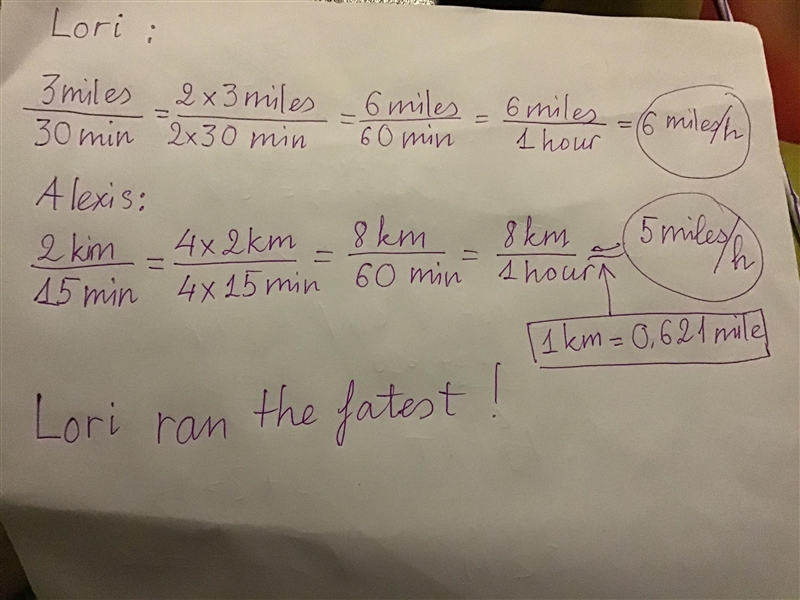 Lori :
3 miles / 30 min = 2 x 3 miles / 2x30 min = 6 miles / 60 min = 6 miles / 1 hour = 6 miles/h
Alexis:
2 km / 15 min = 4 x 2 km / 4 x 15 min = 8 km / 60 min = 8 km / 1 hour ≈ 5 miles/h
1 km = 0,621 mile
Lori ran the fatest !